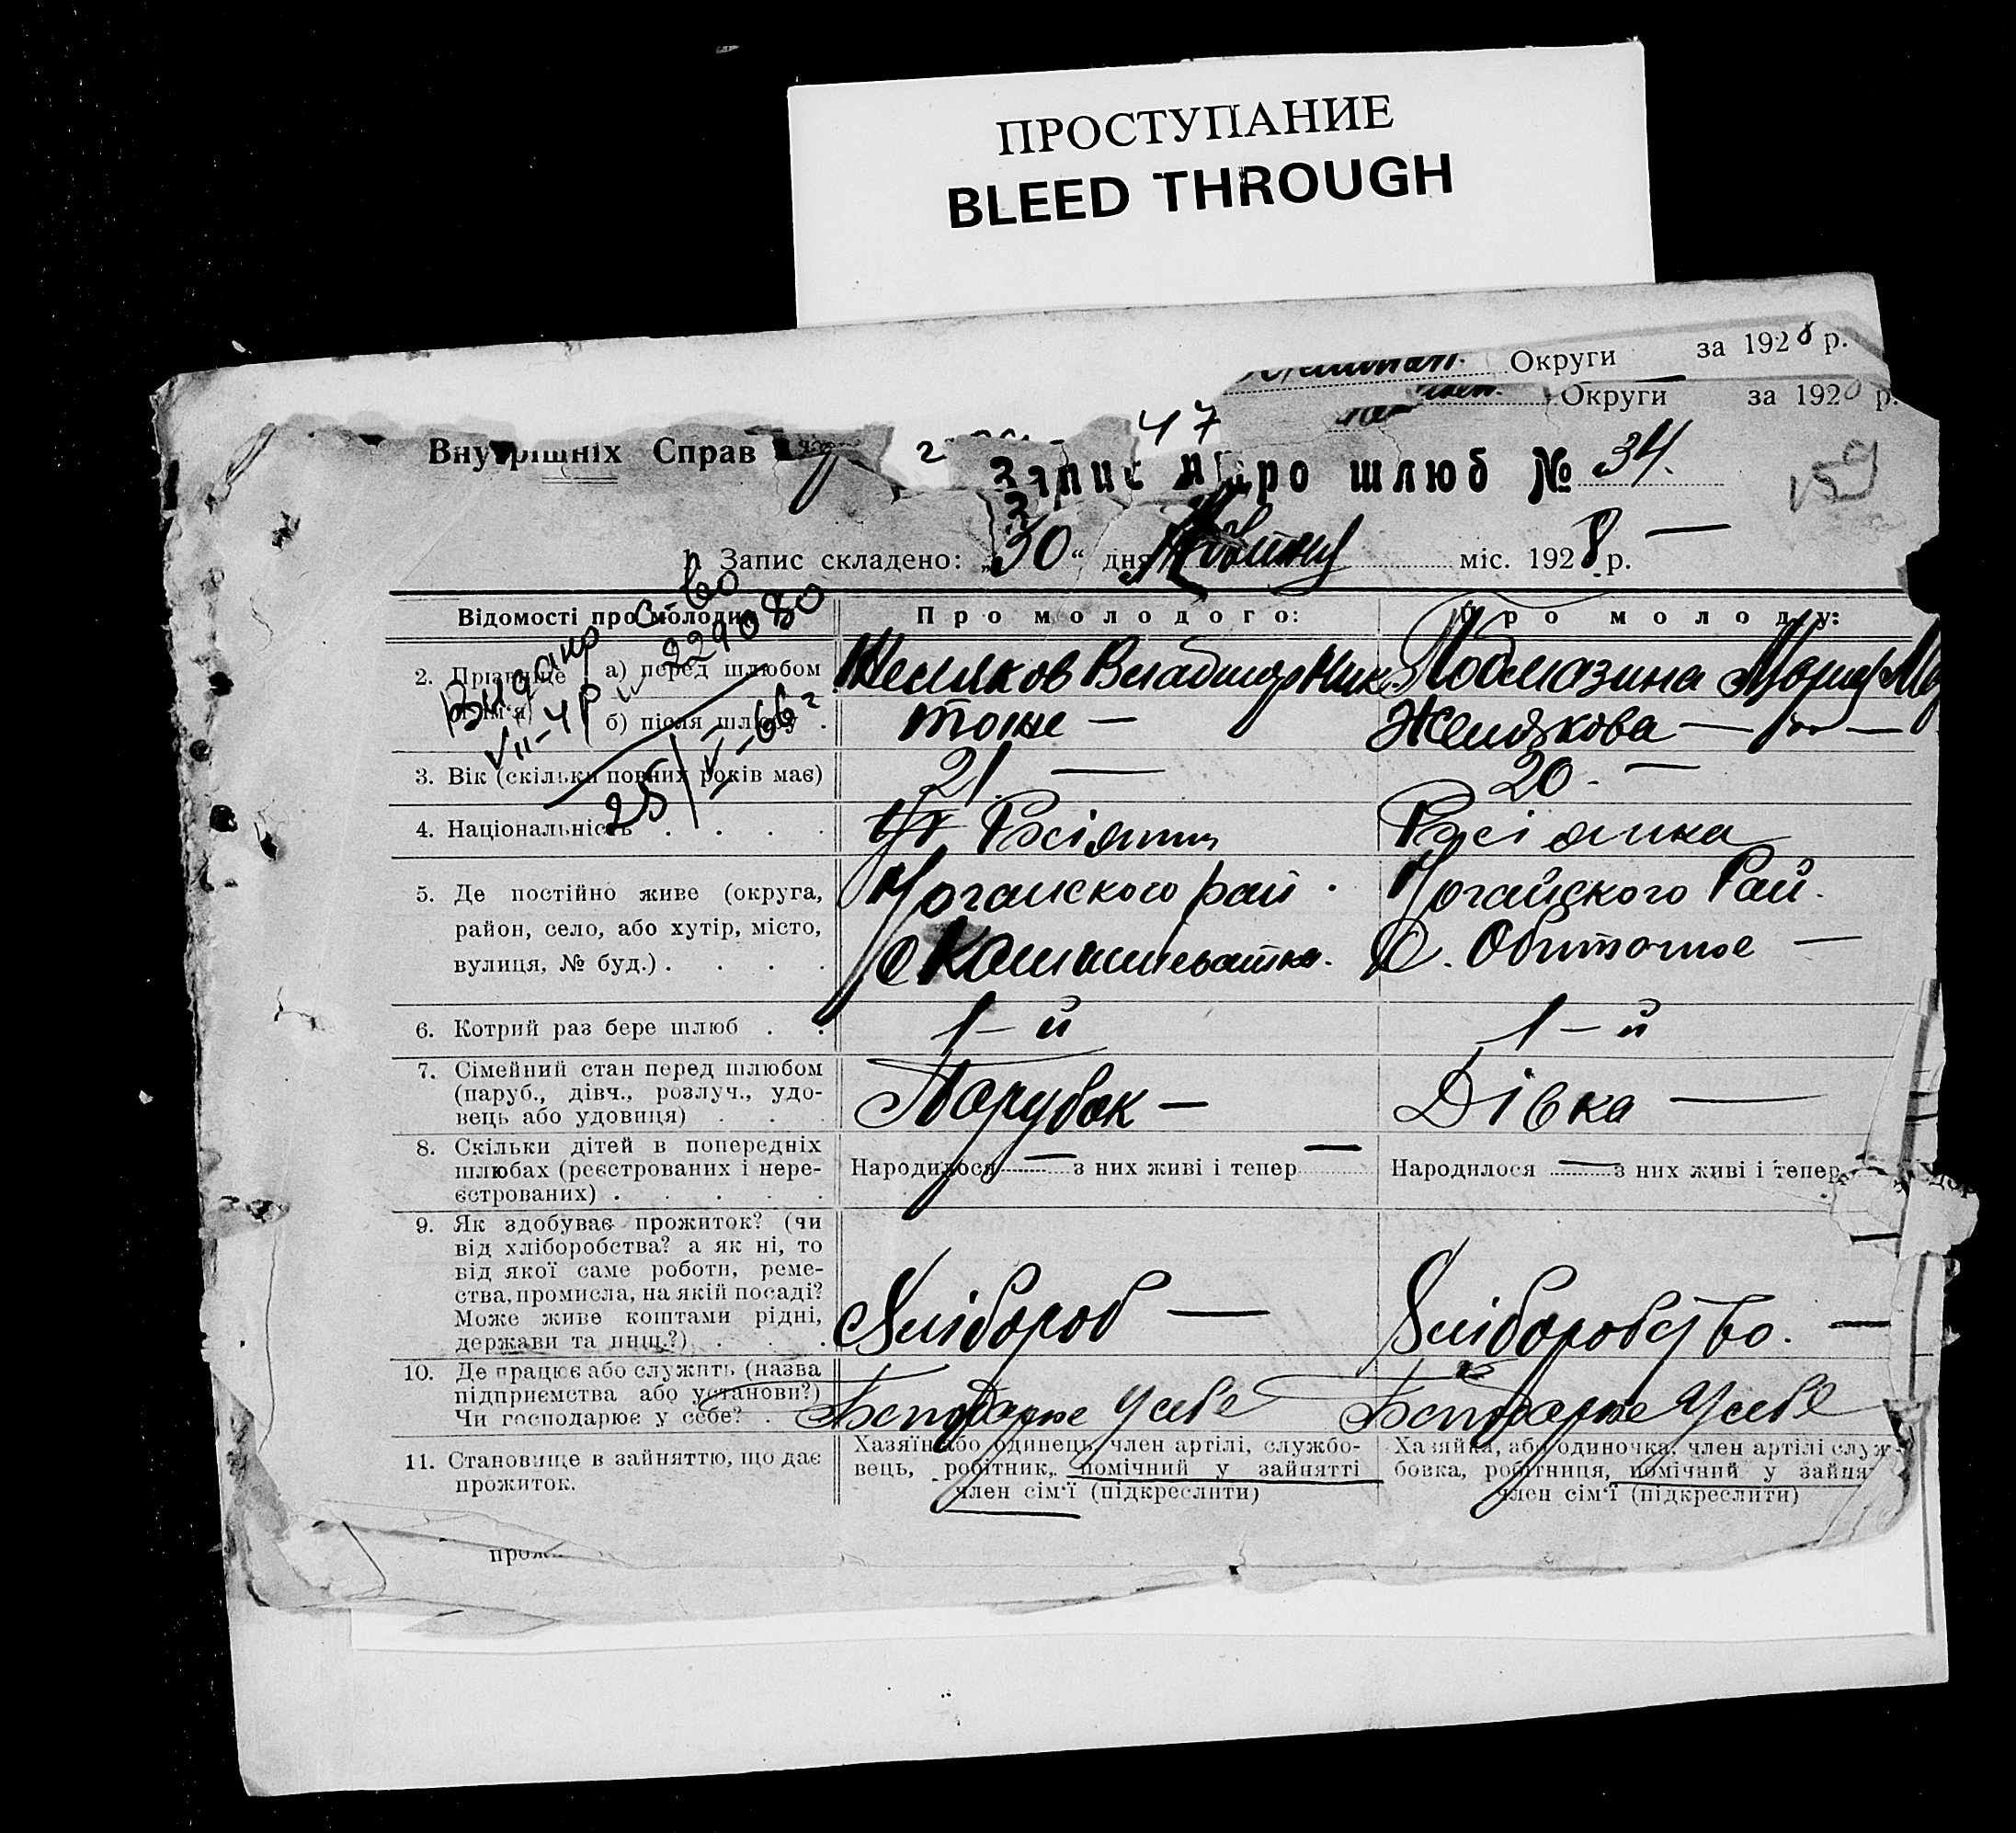 ПРОСТУПАНИЕ
BLEED THROUGH
Округи за 1928 р.
Округи за 192 р.
47
Внутрішніх Справ
Запис про шлюб № 34.
159
1. Запис складено: „30“ дня Жовтня міс. 1928 р. —
Відомості про молодих Про молодого: Про молоду:
Видано с-во
229080
VII-ЧР
25/V-66 г
2. Прізвище й ім'я а) перед шлюбом Желяков Владимир Ник Подмазина Мария
б) після шлюбу . тоже — Желякова —
3. Вік (скільки повних років має) 21. — 20. —
4. Національність . . . . Росіянин Росіянка
5. Де постійно живе (округа, Ногайского рай. Ногайского Рай.
район, село, або хутір, місто,
вулиця, № буд.) . . . . с. Обиточне —
6. Котрий раз бере шлюб . . 1-й 1-й
7. Сімейний стан перед шлюбом
(паруб., дівч., розлуч., удо- Парубок — Дівка —
вець або удовиця) . . .
8. Скільки дітей в попередніх
шлюбах (реєстрованих і нере- Народилося — з них живі і тепер — Народилося — з них живі і тепер
єстрованих) . . . . .
9. Як здобуває прожиток? (чи
від хліборобства? а як ні, то
від якої саме роботи, реме-
ства, промисла, на якій посаді?
Може живе коштами рідні, Хлібороб — Хліборобство. —
держави та инш.?) . . .
10. Де працює або служить (назва
підприємства або установи?) Господарює у себе Господарює у себе
Чи господарює у себе? .
11. Становище в зайняттю, що дає Хазяїн або одинець, член артілі, службо- Хазяйка, або одиночка, член артілі служ-
прожиток. вець, робітник, помічний у зайнятті бовка, робітниця, помічний у зайня
член сім'ї (підкреслити) член сім'ї (підкреслити)